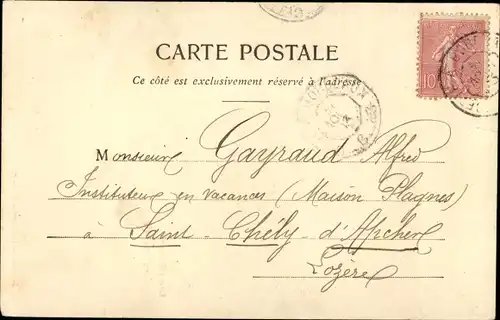 CARTE POSTALE
Ce côté est exclusivement réservé à l'adresse
10
Monsieur Gayraud Alfred
Instituteur en vacances (Maison Plagnes)
à Saint-Chély-d'Apcher
Lozère